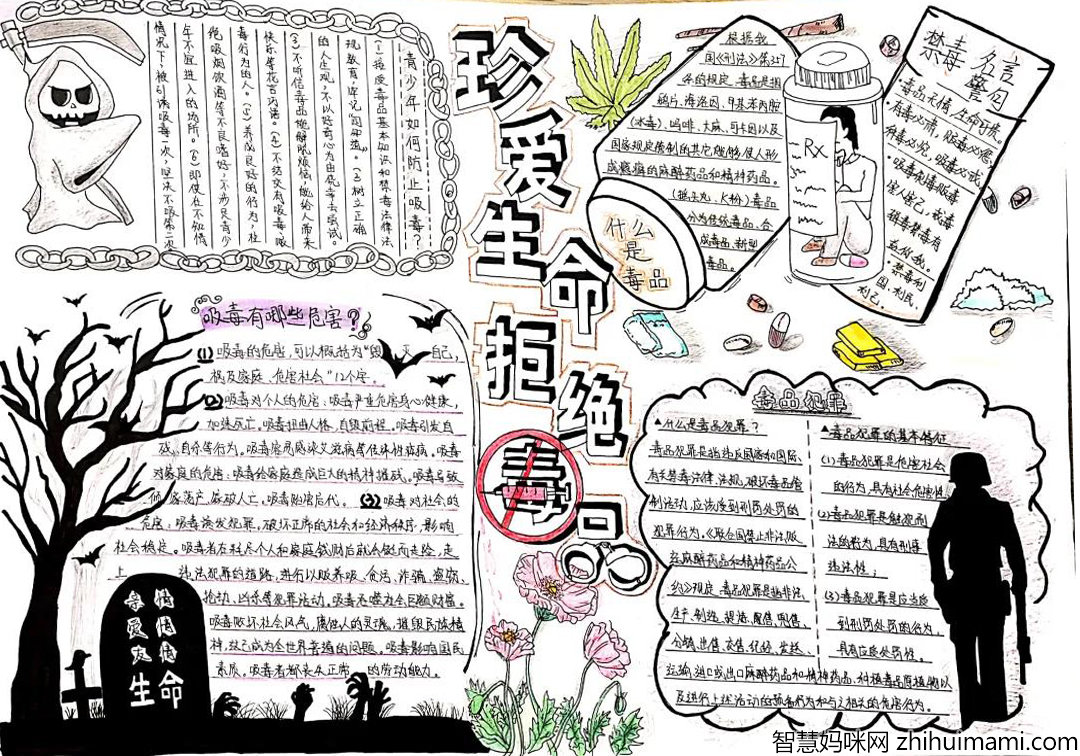 珍爱生命 拒绝毒品
青少年如何防止吸毒?
(1)接受毒品基本知识和禁毒法律法
规教育,牢记"四知道"。(2)树立正确
的人生观,不以好奇心为由侥幸去尝试。
(3)不听信毒品能解脱烦恼,能给人带来
快乐等花言巧语。(4)不结交有吸毒贩
毒行为的人。(5)养成良好的行为,杜
绝吸烟饮酒等不良嗜好,不涉足青少
年不宜进入的场所。(6)即使在不知情
情况下被引诱吸毒一次,坚决不吸第二次
什么
是
毒品
根据我
国《刑法》第357
条的规定,毒品是指
鸦片、海洛因、甲基苯丙胺
(冰毒)、吗啡、大麻、可卡因以及
国家规定管制的其它能够使人形
成瘾癖的麻醉药品和精神药品。
(摇头丸、K粉)毒品
分为传统毒品、合
成毒品、新型
毒品。
Rx
禁毒名言
警句
·毒品无情,生命可贵。
·吸毒贩毒
害人害己,
禁毒有
·禁毒利
国、利民、
利己。
吸毒有哪些危害?
(1)吸毒的危害,可以概括为"毁灭自己,
祸及家庭,危害社会"12个字。
(2)吸毒对个人的危害:吸毒严重危害身心健康,
加速死亡,吸毒扭曲人格,自毁前程,吸毒引发自
残、自杀等行为,吸毒容易感染艾滋病等传染性疾病。吸毒
对家庭的危害:吸毒给家庭造成巨大的精神摧残。吸毒导致
倾家荡产,家破人亡,吸毒贻害后代。(3)吸毒对社会的
危害,吸毒诱发犯罪,破坏正常的社会和经济秩序,影响
社会稳定。吸毒者在耗尽个人和家庭钱财后就会铤而走险,走
上违法犯罪的道路,进行以贩养吸、贪污、诈骗、盗窃、
抢劫、凶杀等犯罪活动。吸毒吞噬社会巨额财富。
吸毒败坏社会风气,腐蚀人的灵魂,摧毁民族精
神,故已成为全世界普遍的问题。吸毒影响国民
素质。吸毒者都丧失正常的劳动能力。
亲情
爱情
友情
生命
毒品犯罪
▲什么是毒品犯罪?
毒品犯罪是指违反国家和国际、
有关禁毒法律、法规,破坏毒品管
制活动,应该受到刑罚处罚的
犯罪行为。《联合国禁止非法贩
运麻醉药品和精神药品公
约》规定,毒品犯罪是指非法
生产、制造、提炼、配售、兜售、
分销、出售、交售、经纪、发送、
运输、进口或出口麻醉药品和精神药品、种植毒品原植物以
及进行上述活动的预备行为和与之相关的危害行为。
▲毒品犯罪的基本特征
(1)毒品犯罪是危害社会
的行为,具有社会危害性
(2)毒品犯罪是触犯刑
法的行为,具有刑事
违法性;
(3)毒品犯罪是应当受
到刑罚处罚的行为,
具有应受处罚性。
智慧妈咪网 zhihuimami.com